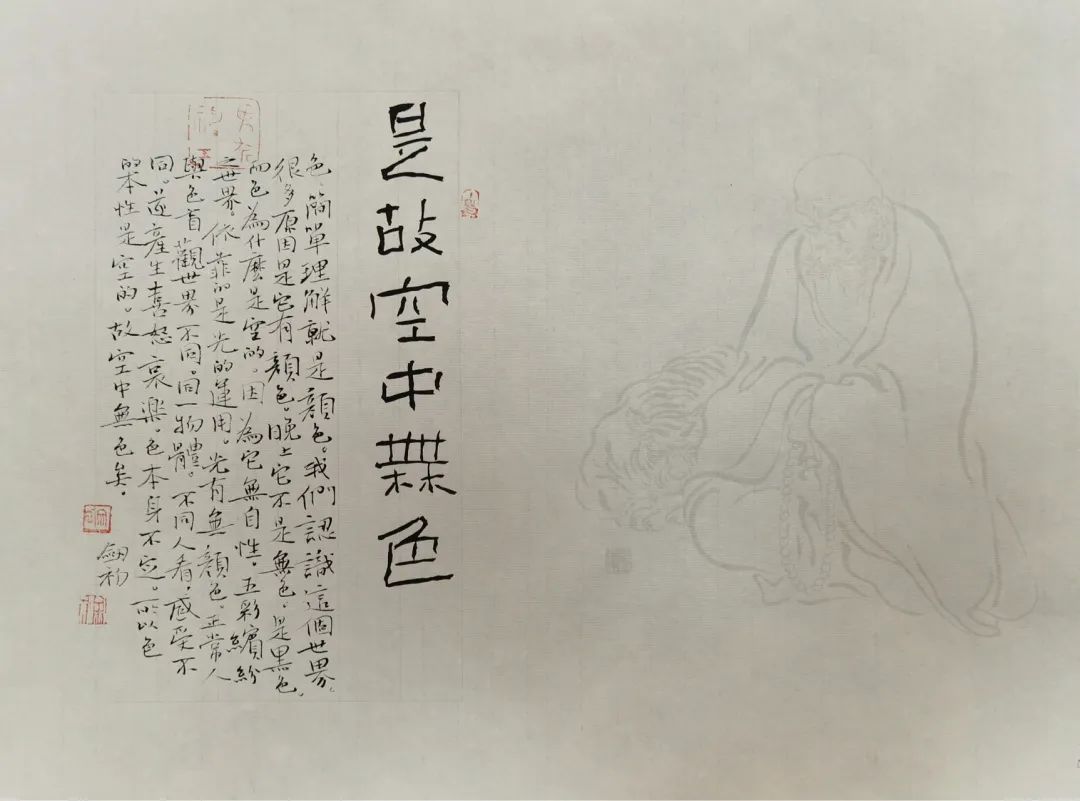 是故空中無色
色,簡單理解就是顔色。我們認識這個世界。
很多原因是它有顔色。晚上它不是無色,是黑色,
而色為什麼是空的。因為它無自性,五彩繽紛
之世界。依靠的是光的運用。光有無顔色。正常人
與色盲觀世界不同。同一物體。不同人看,感受不
同。並產生喜怒哀樂。色本身不定。所以色
的本性是空的。故空中無色矣。